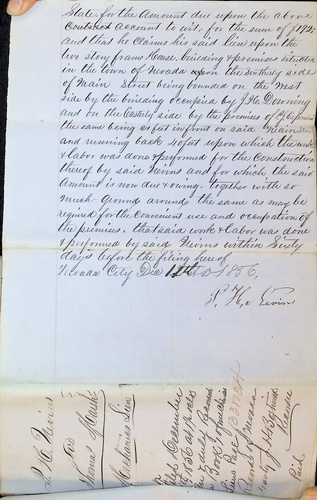 State, for the Amount due upon the above
Account to wit, for the sum of $192
and that he claims his said lien upon the
two story frame House, building & premises situated
in the town of Nevada upon the Southerly side
of Main Street being bounded on the West
side by the building occupied by J. W. Downing
and on the Easterly side by the premises of
the same being feet in front on said Main Street
and running back feet upon which the work
& labor was done & performed for the Construction
thereof by said Nevins and for which the said
Amount is now due & owing, together with so
much ground around the same as may be
required for the convenient use and occupation of
the premises, that said work & labor was done
& performed by said Nevins within Sixty
days before the filing hereof
Nevada City Dec 12th AD 1856,
P. H. Nevins
P. H. Nevins
vs
Thomas Marsh
Mechanics Lien
Filed December
1856 at
and Recorded
in Book 1 Mechanics
Liens Page
Records of Nevada
County
Recorder
Paid